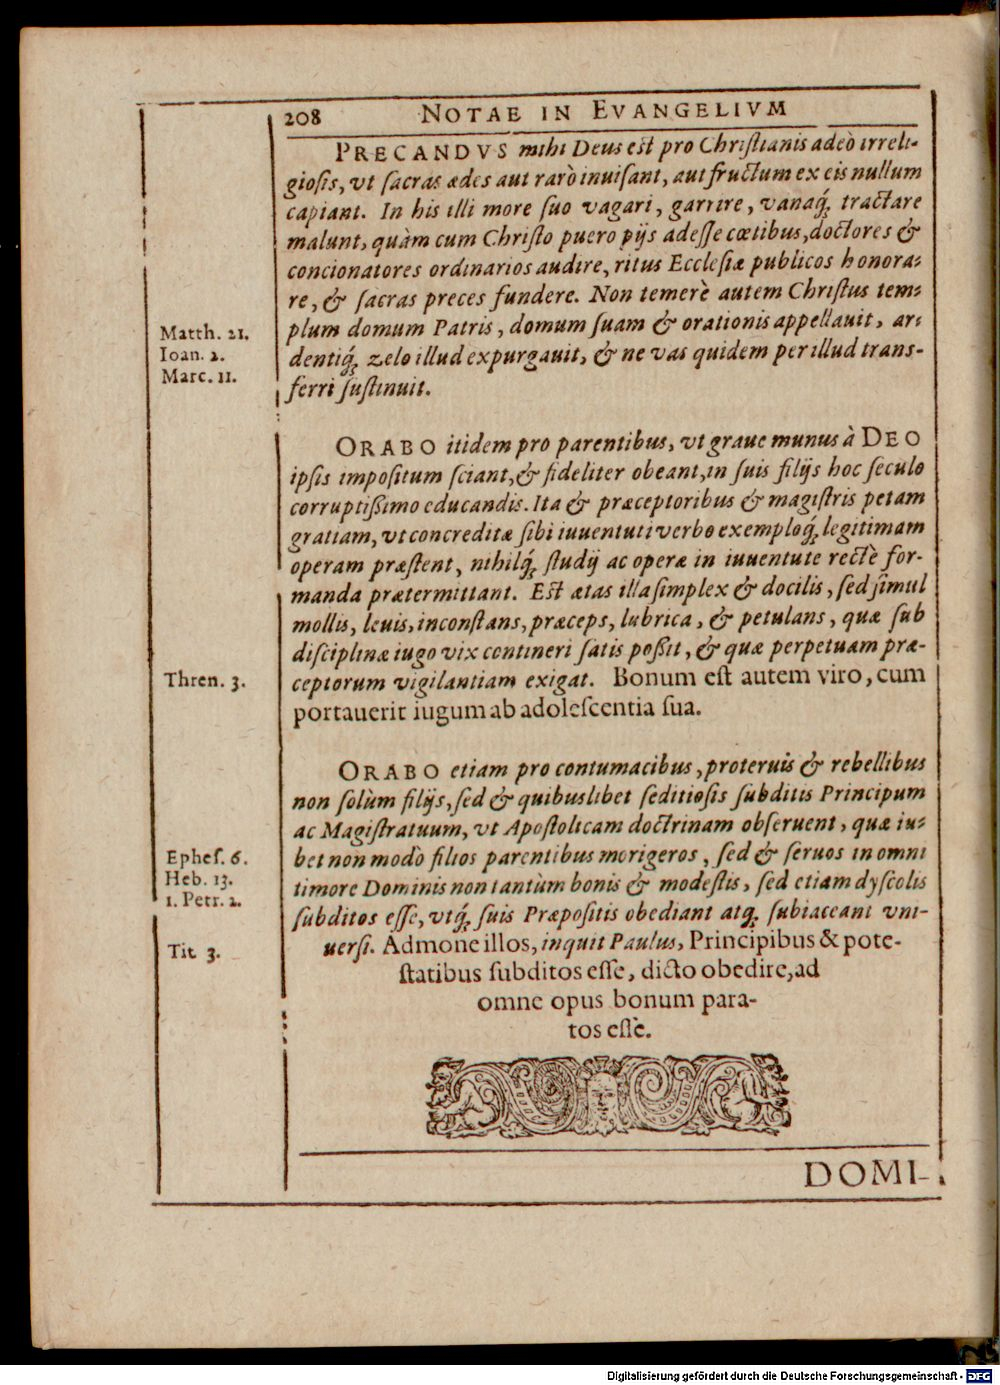 208 NOTAE IN EVANGELIVM
PRECANDVS mihi Deus est pro Christianis adeò irreli-
giosis, vt sacras ædes aut rarò inuisant, aut fructum ex eis nullum
capiant. In his illi more suo vagari, garrire, vanaq́; tractare
malunt, quàm cum Christo puero pijs adesse cœtibus, doctores &
concionatores ordinarios audire, ritus Ecclesiæ publicos honora-
re, & sacras preces fundere. Non temerè autem Christus tem-
plum domum Patris, domum suam & orationis appellauit, ar-
dentiq́; zelo illud expurgauit, & ne vas quidem per illud trans-
ferri sustinuit.
Matth. 21.
Ioan. 2.
Marc. 11.
ORABO itidem pro parentibus, vt graue munus à DEO
ipsis impositum sciant, & fideliter obeant, in suis filijs hoc seculo
corruptissimo educandis. Ita & præceptoribus & magistris petam
gratiam, vt concreditæ sibi iuuentuti verbo exemploq́; legitimam
operam præstent, nihilq́; studij ac operæ in iuuentute rectè for-
manda prætermittant. Est ætas illa simplex & docilis, sed simul
mollis, leuis, inconstans, præceps, lubrica, & petulans, quæ sub
disciplinæ iugo vix contineri satis possit, & quæ perpetuam præ-
ceptorum vigilantiam exigat. Bonum est autem viro, cum
portauerit iugum ab adolescentia sua.
Thren. 3.
ORABO etiam pro contumacibus, proteruis & rebellibus
non solùm filijs, sed & quibuslibet seditiosis subditis Principum
ac Magistratuum, vt Apostolicam doctrinam obseruent, quæ iu-
bet non modò filios parentibus morigeros, sed & seruos in omni
timore Dominis non tantùm bonis & modestis, sed etiam dyscolis
subditos esse, vtq́; suis Præpositis obediant atq; subiaceant vni-
uersi. Admone illos, inquit Paulus, Principibus & pote-
statibus subditos esse, dicto obedire, ad
omne opus bonum para-
tos esse.
Ephes. 6.
Heb. 13.
1. Petr. 2.
Tit. 3.
DOMI-
Digitalisierung gefördert durch die Deutsche Forschungsgemeinschaft - DFG